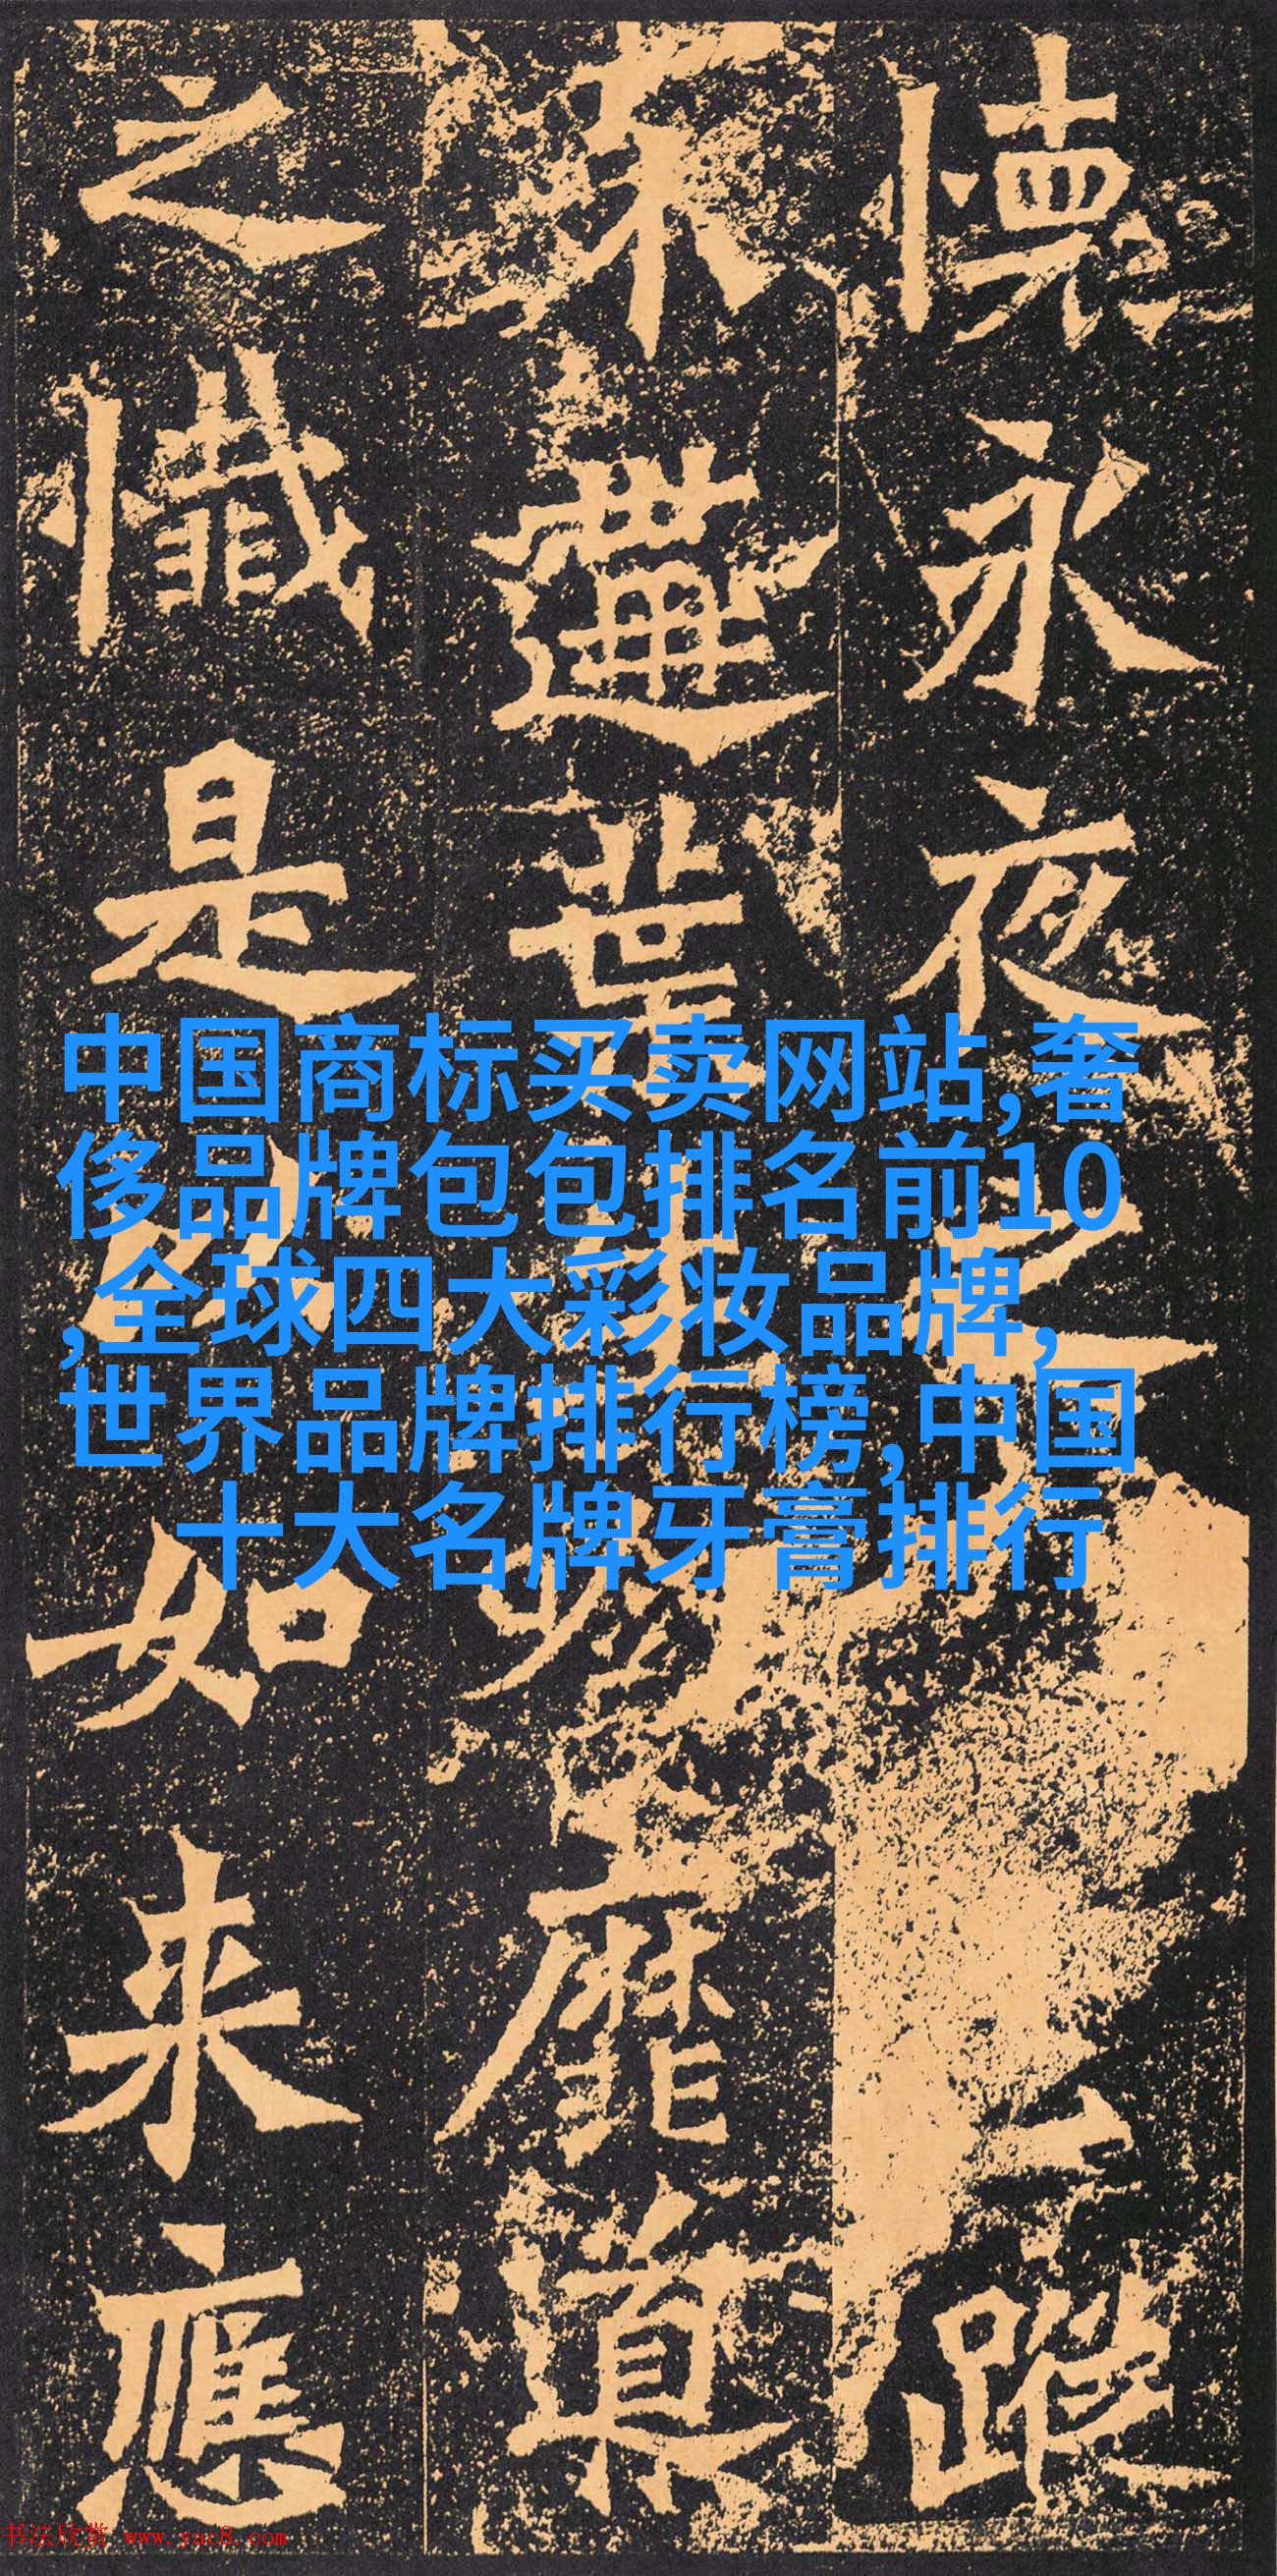 懷永夜之
蹤
世
靡
之懺是
如来應
中国商标买卖网站,奢
侈品牌包包排名前10
,全球四大彩妆品牌,
世界品牌排行榜,中国
十大名牌牙膏排行
书法欣赏 www.yac8.com